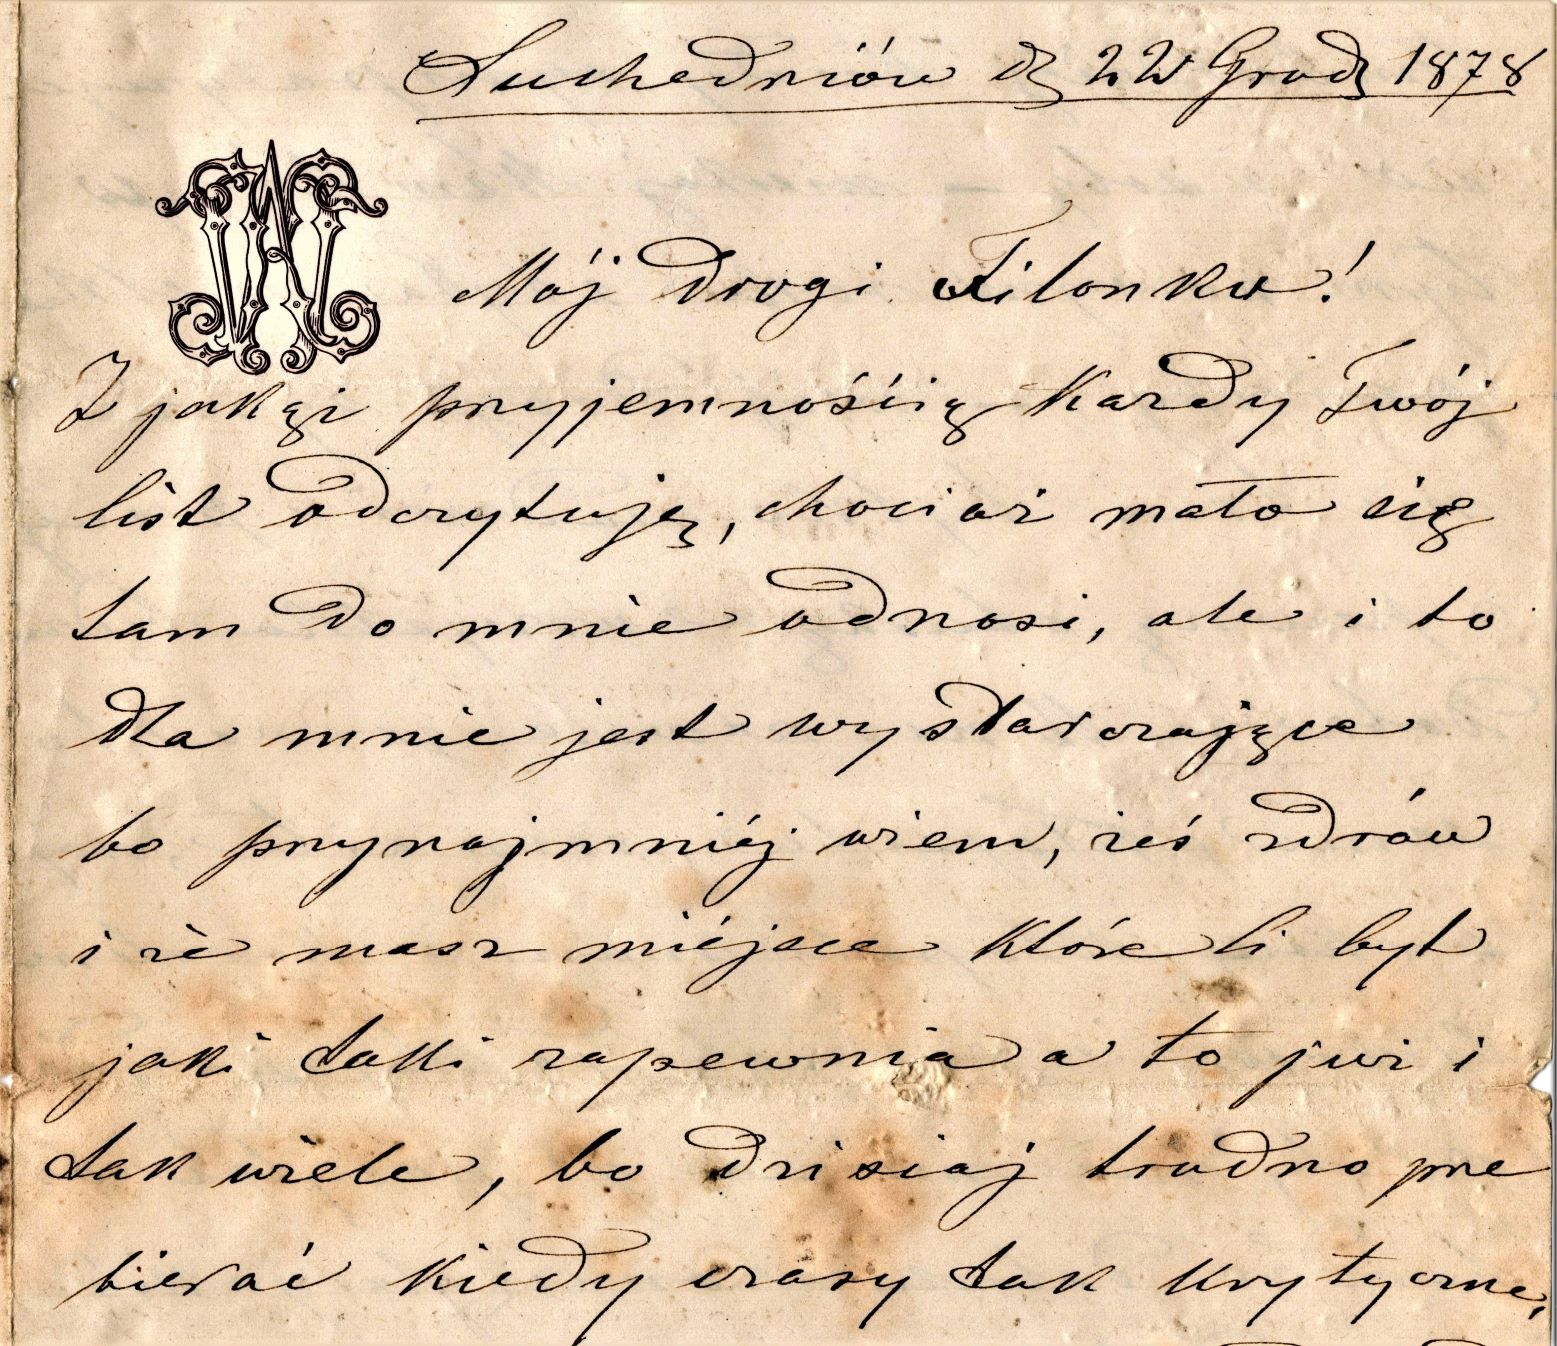 Suchedniów d. 22 Grud 1878
Mój drogi Filonku!
Z jakąż przyjemnośćią każdy Twój
list odczytuję, chociaż mało się
tam do mnie odnosi, ale i to
dla mnie jest wystarczające
bo przynajmniéj wiem, żeś zdrów
i że masz miéjsce które li byt
jaki taki zapewnia a to już i
tak wiele, bo dzisiaj trudno prze
bierać kiedy czasy tak krytyczne,